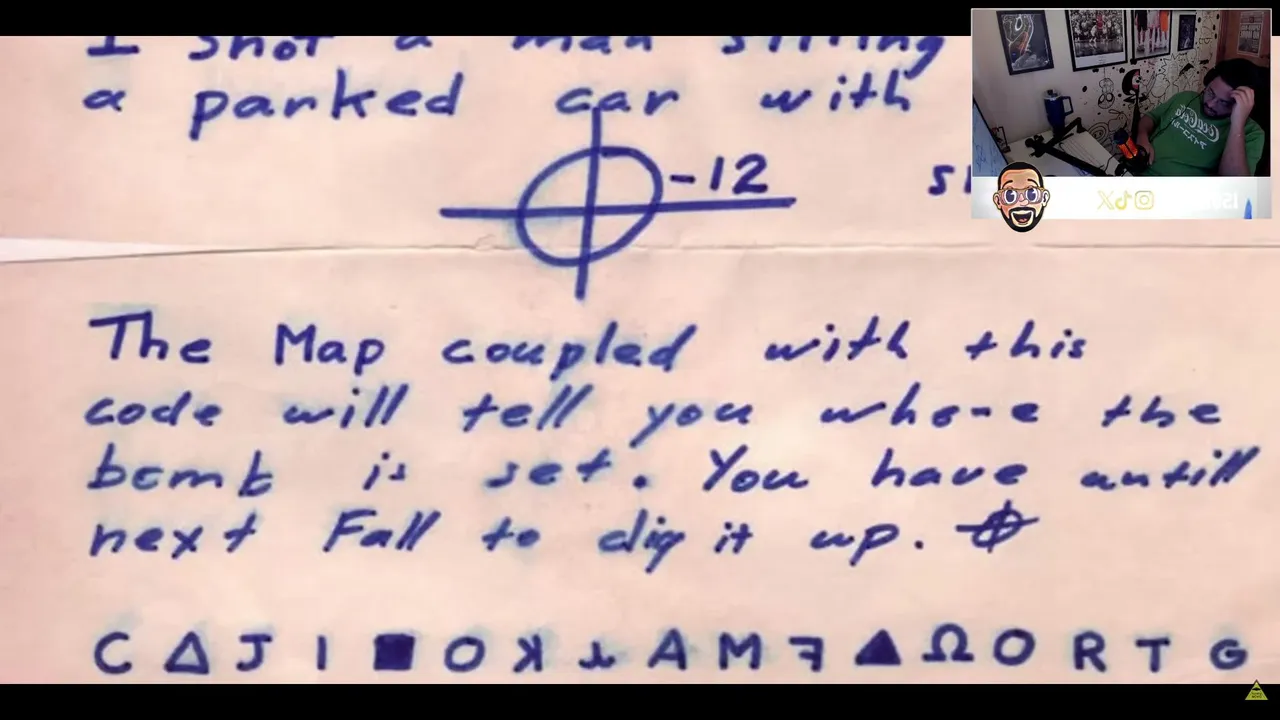 I shot a man sitting
a parked car with
-12
The Map coupled with this
code will tell you who-e the
bomb is set. You have antill
next Fall to dig it up.
C Δ J I ■ O ꓘ A M ꟻ ▲ Ω O R T G
Coca-Cola